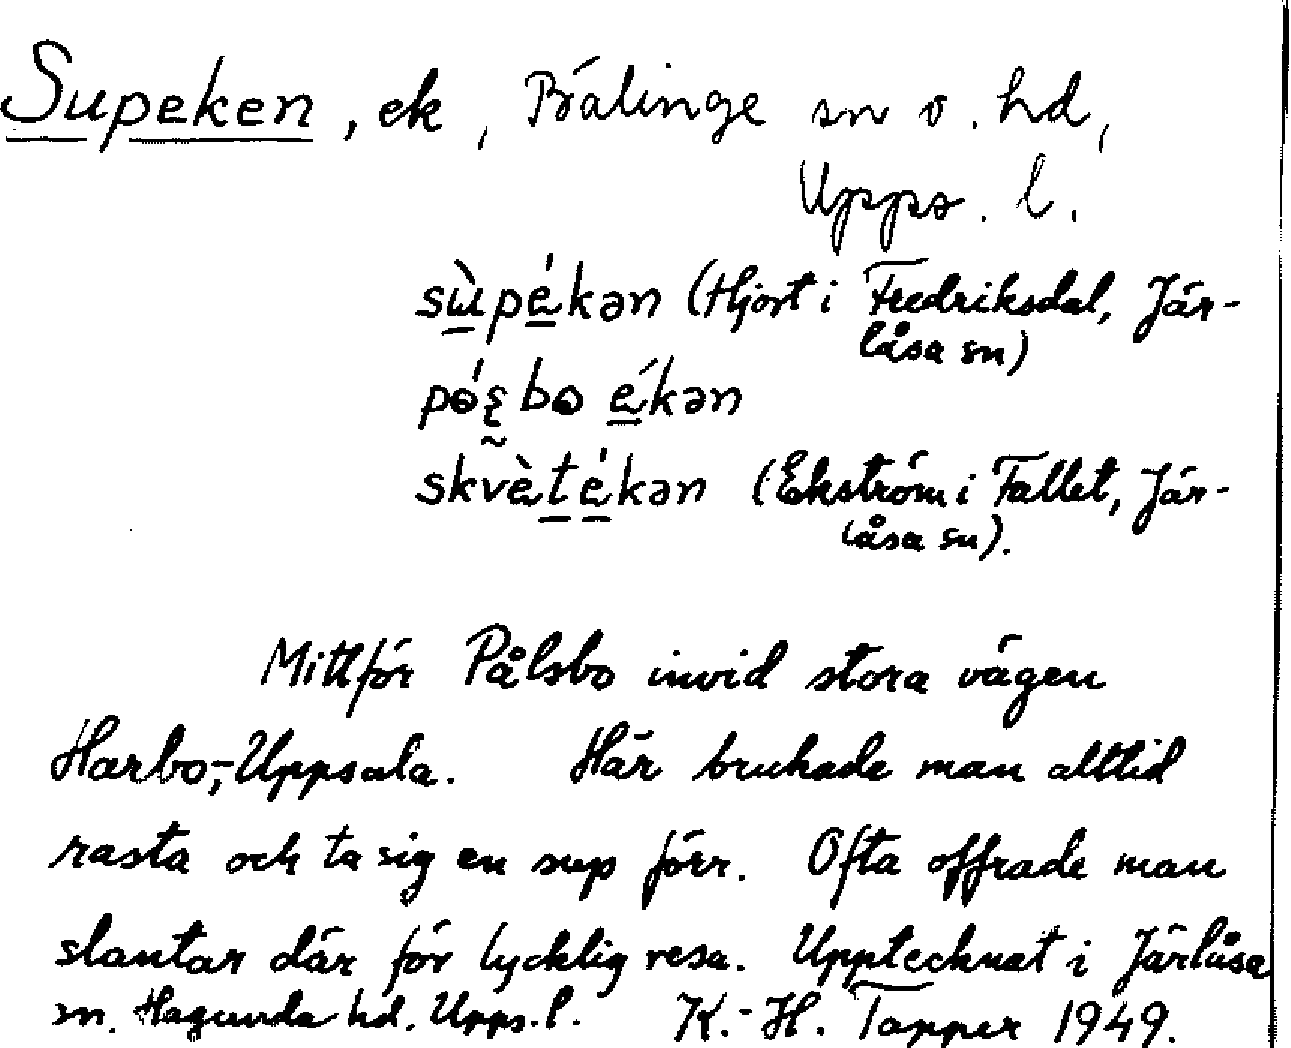 Supeken, ek, Bälinge sn o. hd,
Upps. l.
sùpékən (Hjort i Fredriksdal, Jär-
låsa sn)
bo ékən
skvètékən (Ekström i Fallet, Jär-
låsa sn).
Mittför Pålsbo invid stora vägen
Harbo,-Uppsala. Här brukade man alltid
rasta och ta sig en sup förr. Ofta offrade man
slantar där för lycklig resa. Upptecknat i Järlåsa
sn. Hagunda hd. Upps. l. K.-H. Tapper 1949.